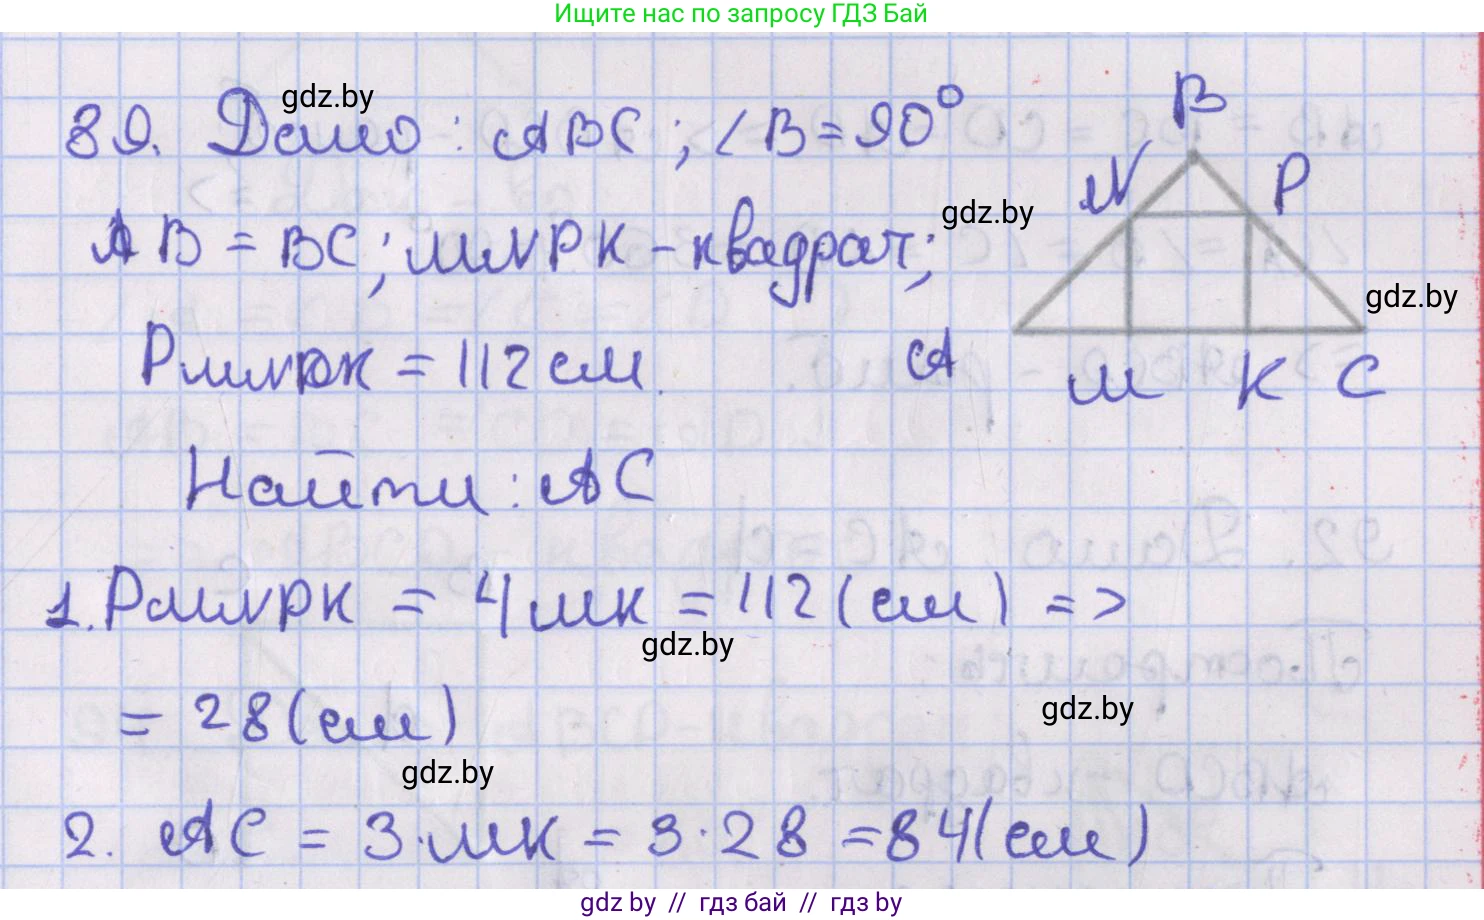 Ищите нас по запросу ГДЗ Бай
gdz.by
89. Дано: ABC; ∠B=90°
B
N
P
gdz.by
AB = BC; MNPK - квадрат;
gdz.by
PMNPK = 112 см.
A
M
K
C
Найти: AC
1. PMNPK = 4MK = 112 (см) =>
gdz.by
= 28 (см)
gdz.by
gdz.by
2. AC = 3·MK = 3·28 = 84 (см)
gdz.by // гдз бай // гдз by